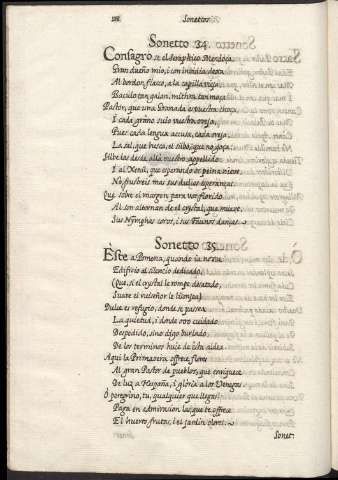 Sonetos
Sonetto 34.
Consagrose el Seraphico Mendoça
Gran dueño mio, i con invidia dexa
Al bordon flaco, a la capilla vieja
Baculo tan galan, mithra tan moça
Pastor, que una Granada es vuestra choça,
I cada grano suio vuestra oveja,
Pues cada lengua acusa, cada oreja
La sal que busca, el silbo que no goça
Silbe las desde allá vuestro appellido
I al Xenil, que esperando os peina nieve
No frustreis mas sus dulces esperanças
Que sobre el margen para vos florido
Al son alternan de el crystal que mueve
Sus Nymphas coros, i sus Faunos danças
Sonetto 35.
Este a Pomona, quando ia no sea
Edificio al silencio dedicado
(Que si el crystal le rompe desatado,
Suave el ruiseñor le lisongea)
Dulce es refugio, donde se passea
La quietud, i donde otro cuidado
Despedido, sino digo burlado,
De los terminos huie de esta aldea
Aqui la Primavera offrece flores
Al gran Pastor de pueblos, que enriquece
De luz a España, i gloria a los Venegas
O peregrino, tu, qualquier que llegas
Paga en admiracion las que te offrece
El huerto frutas, i el jardin olores.
Sonet